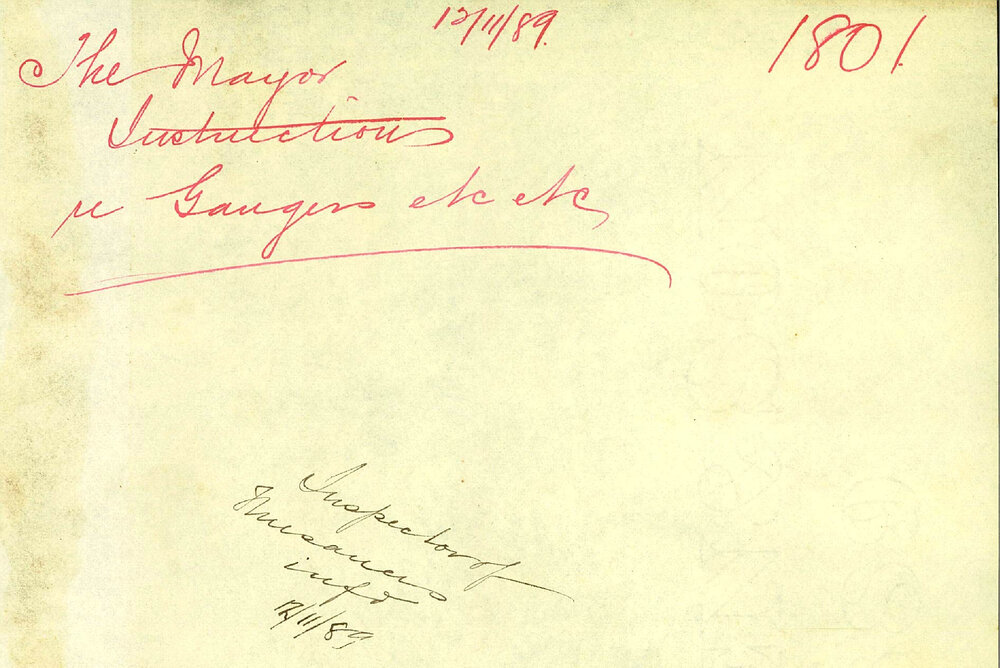 12/11/89.
1801.
The Mayor
Instructions
re Gaugers etc etc
Inspector of
Nuisances
infd
12/11/89